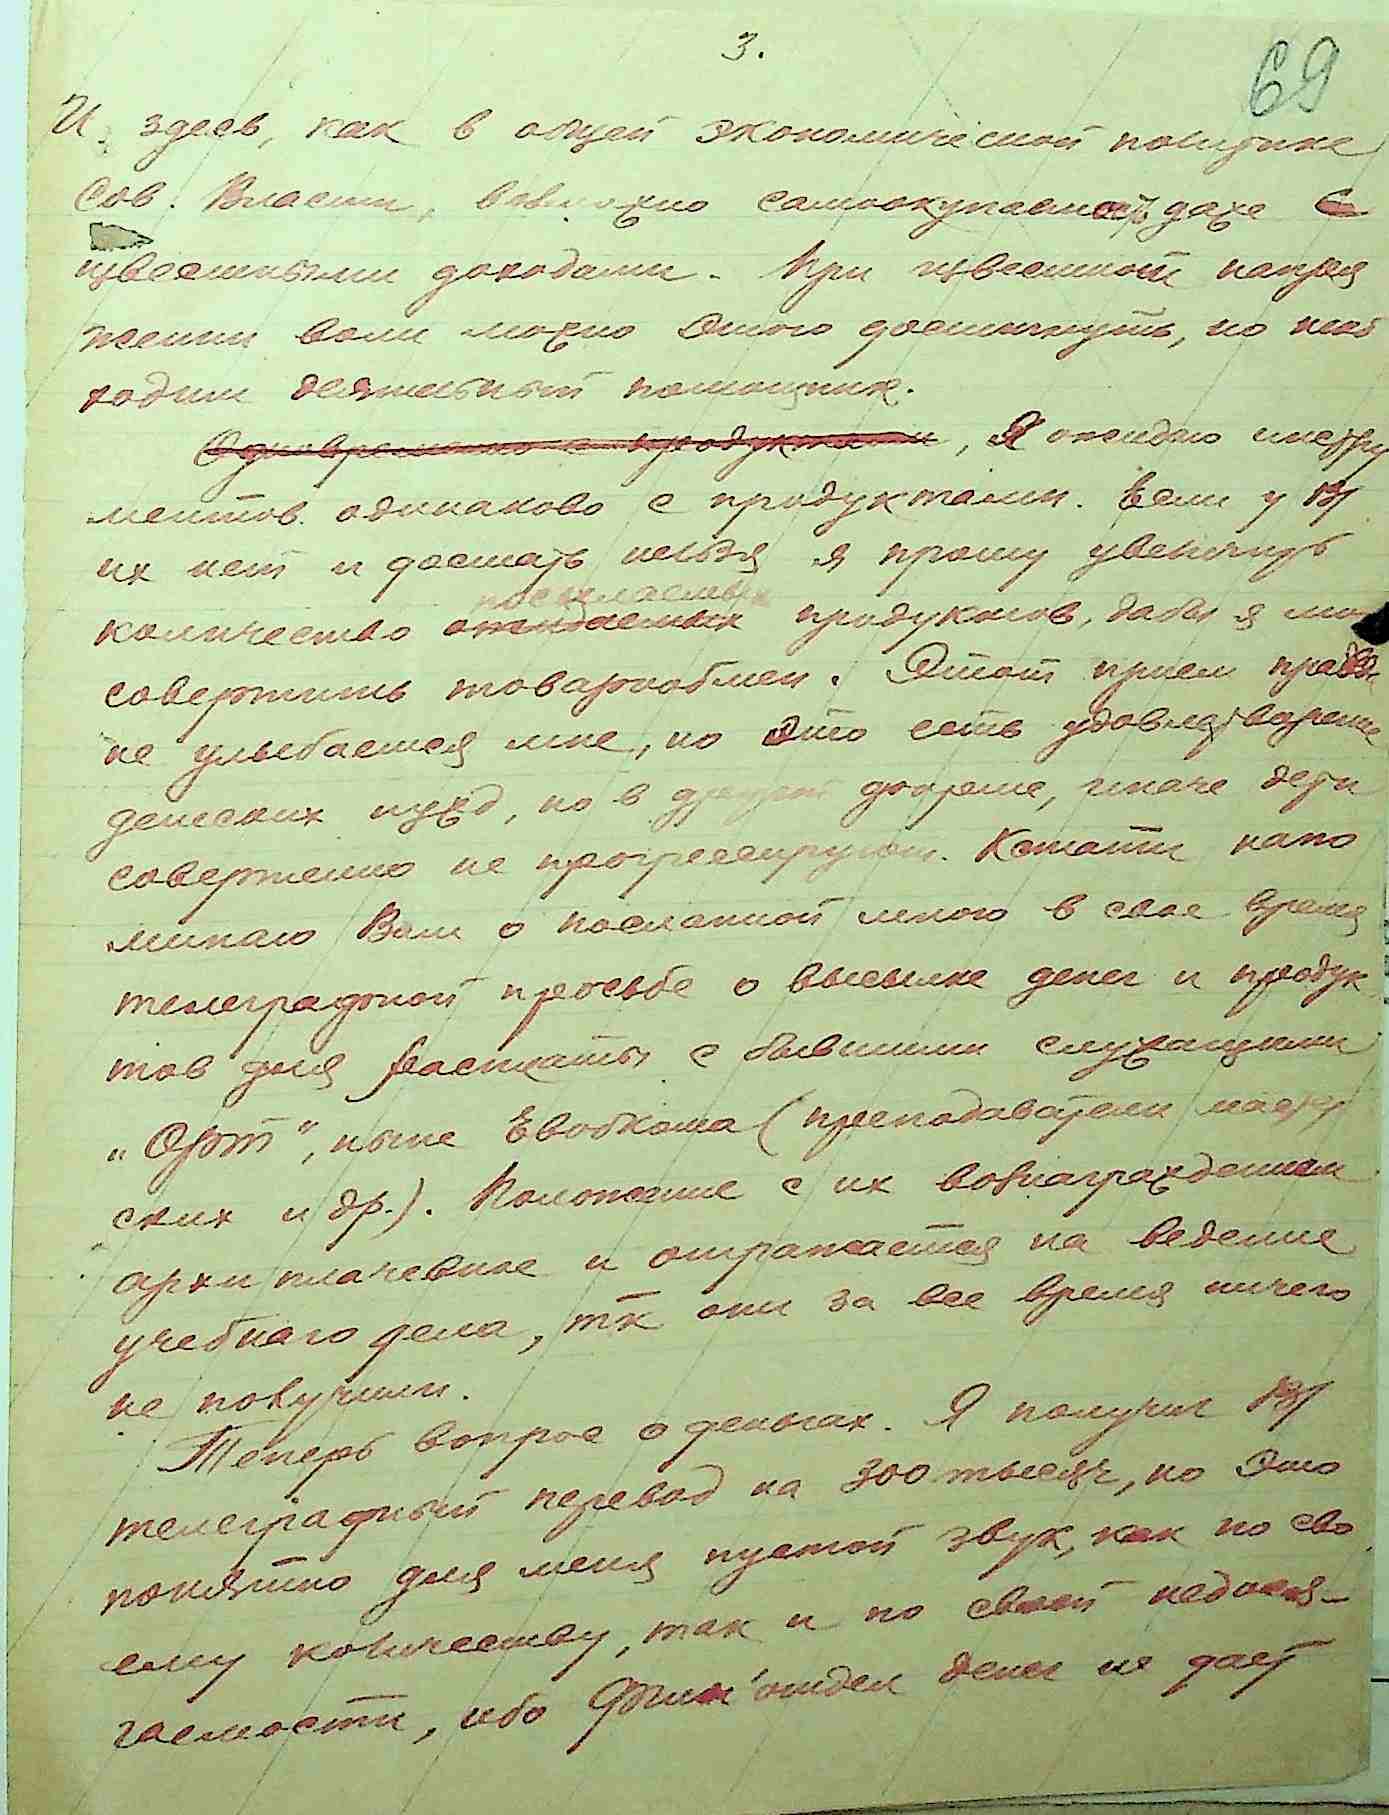 3.
69
И здесь, как в общей экономической политике
Сов. Власти, возможно самоокупаемость даже с
известными доходами. При известной напря
жении воли можно этого достигнуть, но необ
ходим деятельный помощник.
Одновременно с продуктами, Я ожидаю инстру
ментов одинаково с продуктами. Если у В/
их нет и достать нельзя я прошу увеличить
посылаемых
количество ожидаемых продуктов, дабы я мог
совершить товарообмен. Этот прием правда
не улыбается мне, но это есть удовлетворение
детских нужд, но в другой форме, иначе дети
совершенно не прогрессируют. Кстати напо
минаю Вам о посланной мною в свое время
телеграфной просьбе о высылке денег и продук
тов для расплаты с бывшими служащими
„Орт", ныне Евобкома (преподаватели мастер
ских и др.). Положение с их вознаграждением
архи плачевное и отражается на ведение
учебного дела, тк они за все время ничего
не получили.
Теперь вопрос о деньгах. Я получил В/
телеграфный перевод на 300 тысяч, но это
понятно для меня пустой звук, как по сво
ему количеству, так и по своей недося-
гаемости, ибо Фин'отдел денег не дает